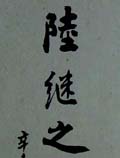 陸继之